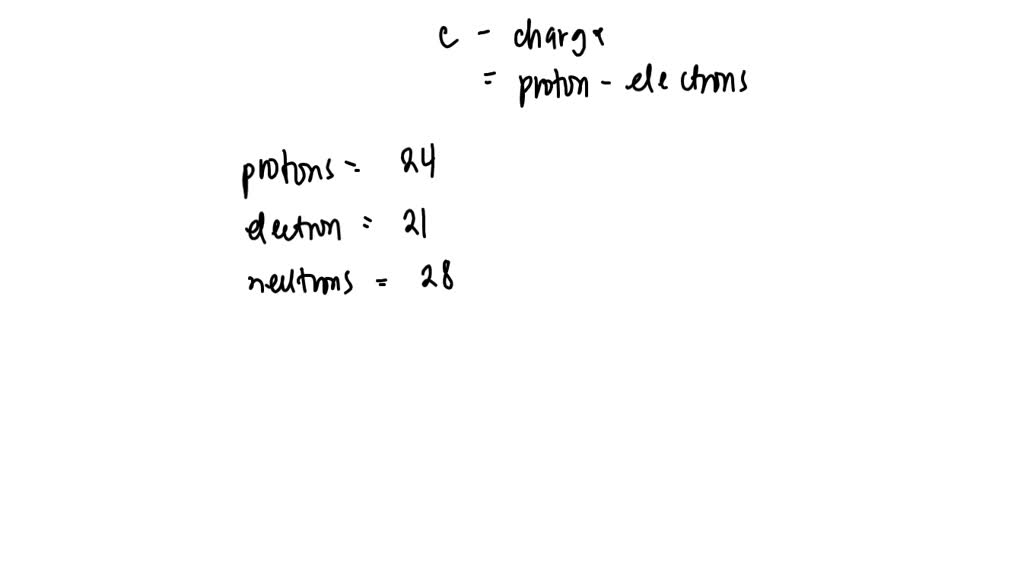 c - charge
= proton - electrons
protons = 24
electron = 21
neutrons = 28